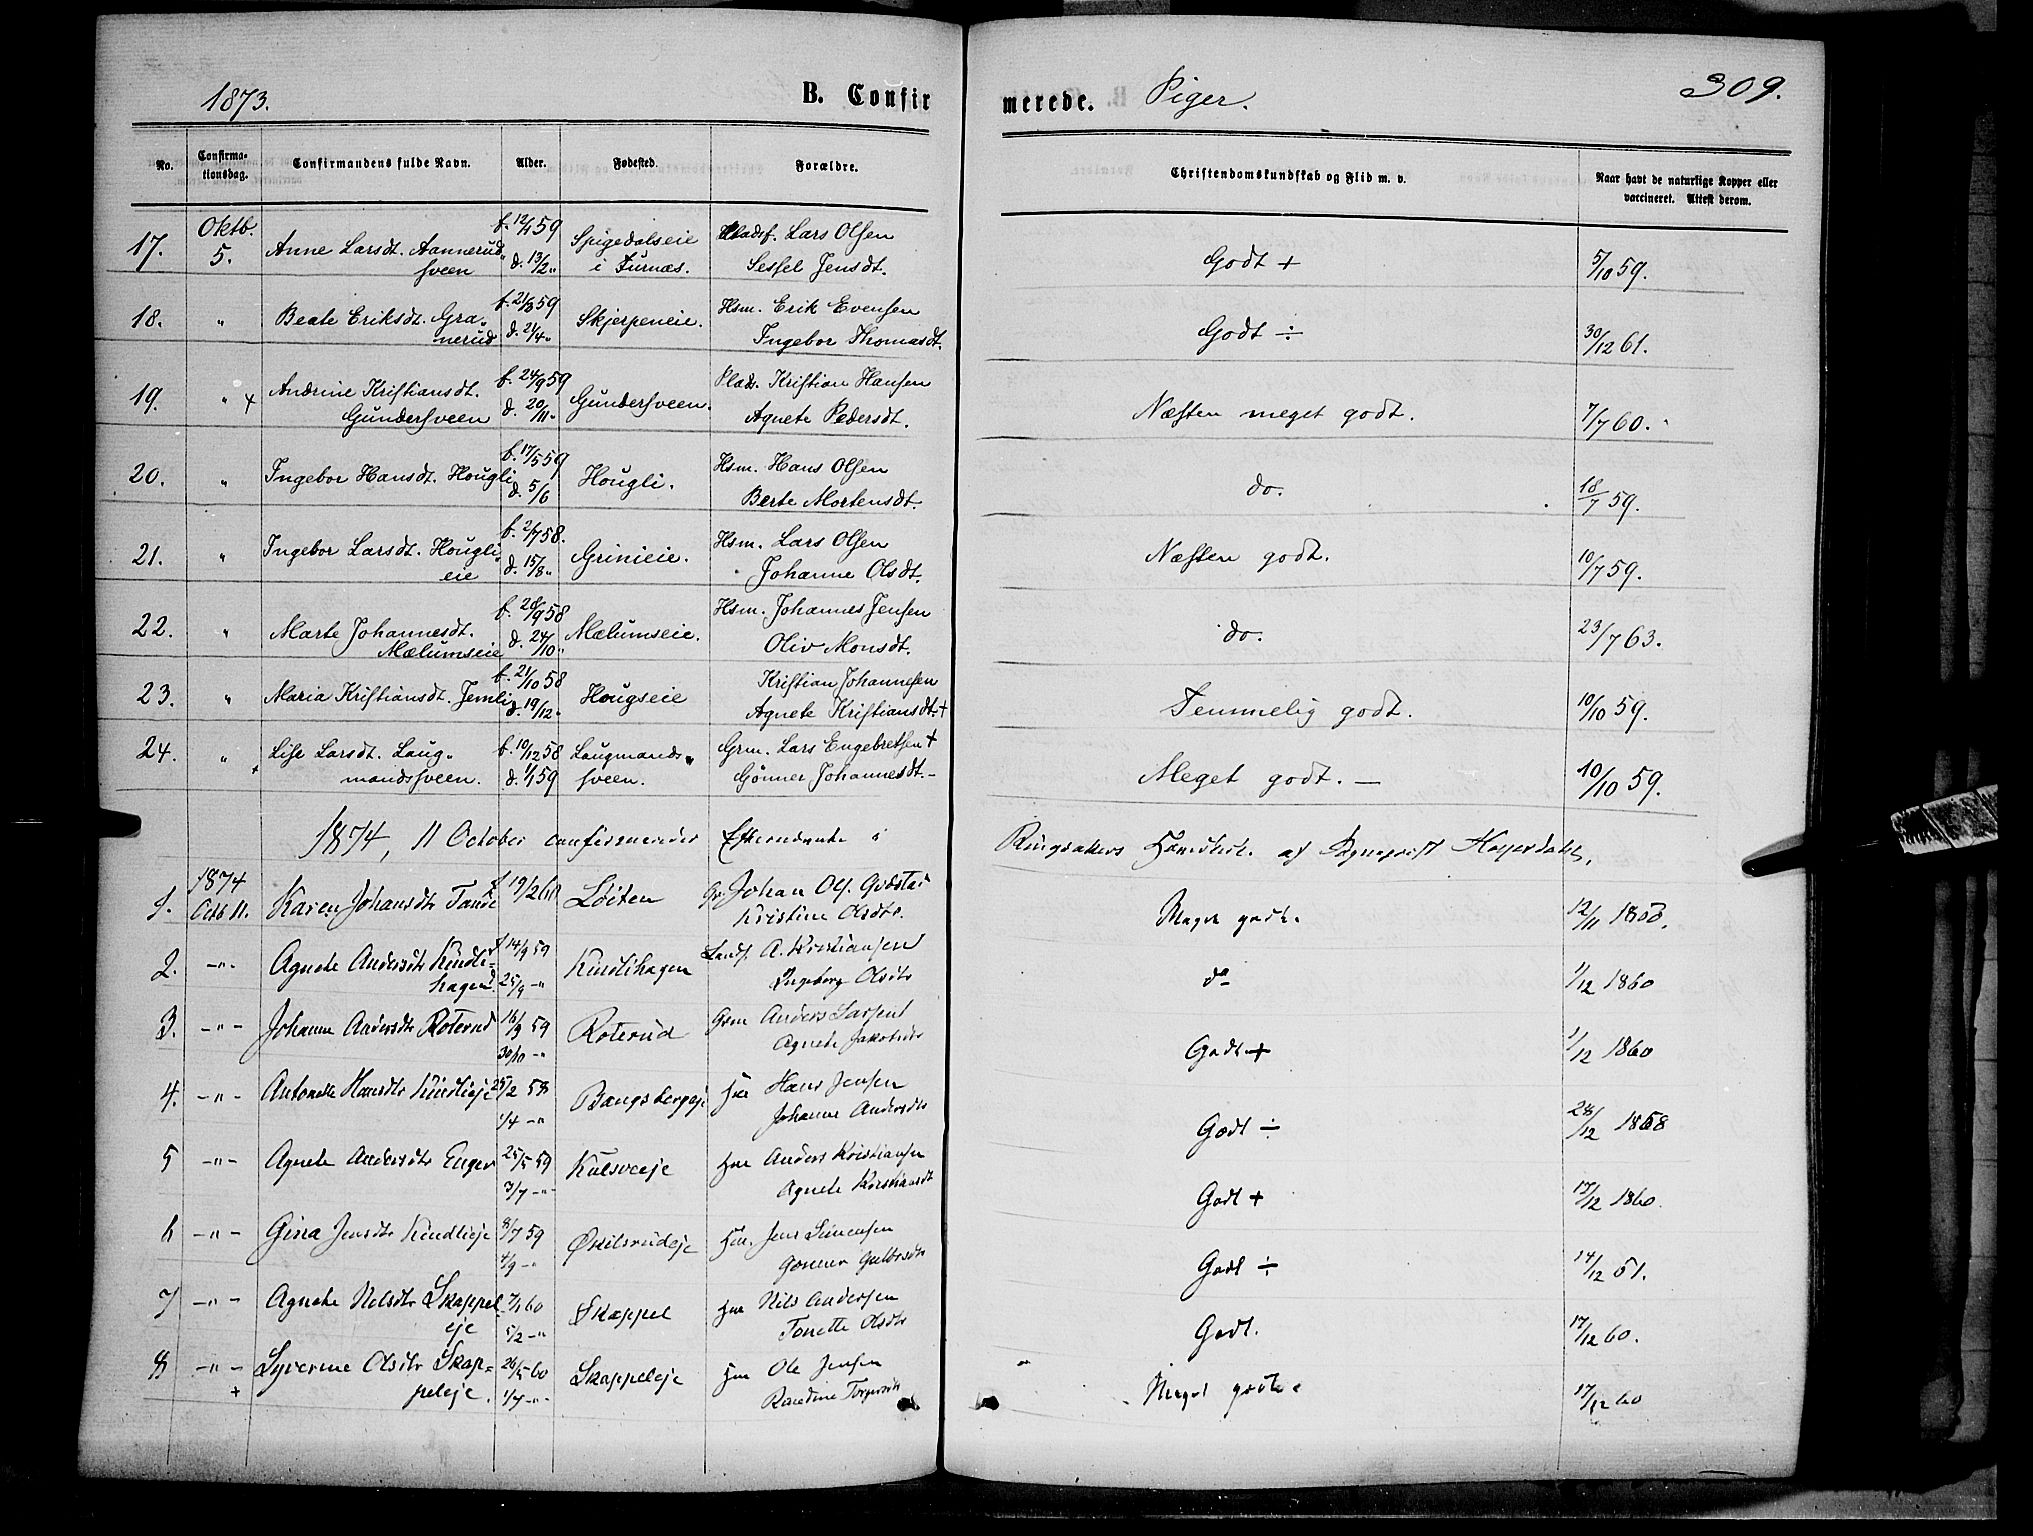 1873.
B. Confir
merede.
Piger.
309.
No.
Confirma-
tionsdag.
Confirmandens fulde Navn.
Alder.
Fødested.
Forældre.
Christendomskundskab og Flid m. v.
Naar havt de naturlige Kopper eller
vaccineret. Attest derom.
17. Oktb. 5. Anne Larsdt. Aannerud- f. 12/1 59 Spigedalseie Pladsf. Lars Olsen Godt + 5/10 59.
sveen d. 13/2 " i Furnæs. Sessel Jensdt.
18. " Beate Eriksdt. Gra- f. 21/3 59 Skjerpeneie. Hsm. Erik Evensen Godt ÷ 30/12 61.
nerud d. 21/4 " Ingebor Thomasdt.
19. " + Andrine Kristiansdt. f. 24/9 59 Gundersveen. Plads. Kristian Hansen Næsten meget godt. 7/7 60.
Gundersveen d. 20/11 " Agnete Pedersdt.
20. " Ingebor Hansdt. Hougli f. 17/5 59 Hougli. Hsm. Hans Olsen do. 18/7 59.
d. 5/6 Berte Mortensdt.
21. " Ingebor Larsdt. Hougli- f. 2/7 58. Grinieie. Hsm. Lars Olsen Næsten godt. 10/7 59.
eie d. 15/8 " Johanne Olsdt.
22. " Marte Johannesdt. f. 28/9 58 Mælumseie. Hsm. Johannes Jensen do. 23/7 63.
Mælumseie d. 24/10 " Oliv Monsdt.
23. " Maria Kristiansdt. Jemli f. 21/10 58 Hougseie Kristian Johannesen Temmelig godt. 10/10 59.
d. 19/12 " Agnete Kristiansdt. +
24. " + Lise Larsdt. Laug- f. 10/12 58 Laugmands- Grm. Lars Engebretsen + Meget godt. — 10/10 59.
mandsveen. d. 1/1 59 sveen. Gønner Johannesdt. -
1874, 11 October confirmerede Efternævnte i Ringsakers af
1. 1874 Octb 11. Karen Johansdtr Tande f 19/2 60 Løiten Johan Ols. Godstad Meget godt. 12/11
Kristine Olsdtr.
2. -"- Agnete Andersdtr Kindli- f 14/9 59 Kindlihagen A. Kristiansen do 1/12 1860
hagen d. 25/9 -" Ingeborg Olsdtr
3. -"- Johanne Andersdtr Roterud 16/9 59 Roterud Grm Anders Larsen Godt + 1/12 1860
30/10 -" Agnete Jakobsdtr
4. -"- Antonette Hansdtr Kindlieje 25/2 58 Bangsbergeje Hsm Hans Jensen Godt ÷ 28/12 1858
1/4 -" Johanne Andersdtr
5 -"- Agnete Andersdtr Enger 25/5 59 Kulsveeje Hsm Anders Kristiansen Godt + 17/12 1860.
3/7 -"- Agnete Kristiansdt
6 -"- Gina Jensdtr Kindlieje 8/7 59 Øskilsrudeje Hsm. Jens Simensen Godt ÷ 14/12 61.
4/9 -" Gønner Gulbrsdtr
7 -"- Agnete Nilsdtr Skappel 7/1 60 Skappel Hsm Nils Andersen Godt. 17/12 60.
eje 5/2 -" Tonette Olsdtr
8 -"- + Syverine Olsdtr Skap- 26/5 60 Skappeleje Hsm Ole Jensen Meget godt. 17/12 60
peleje. 1/7 -"- Randine